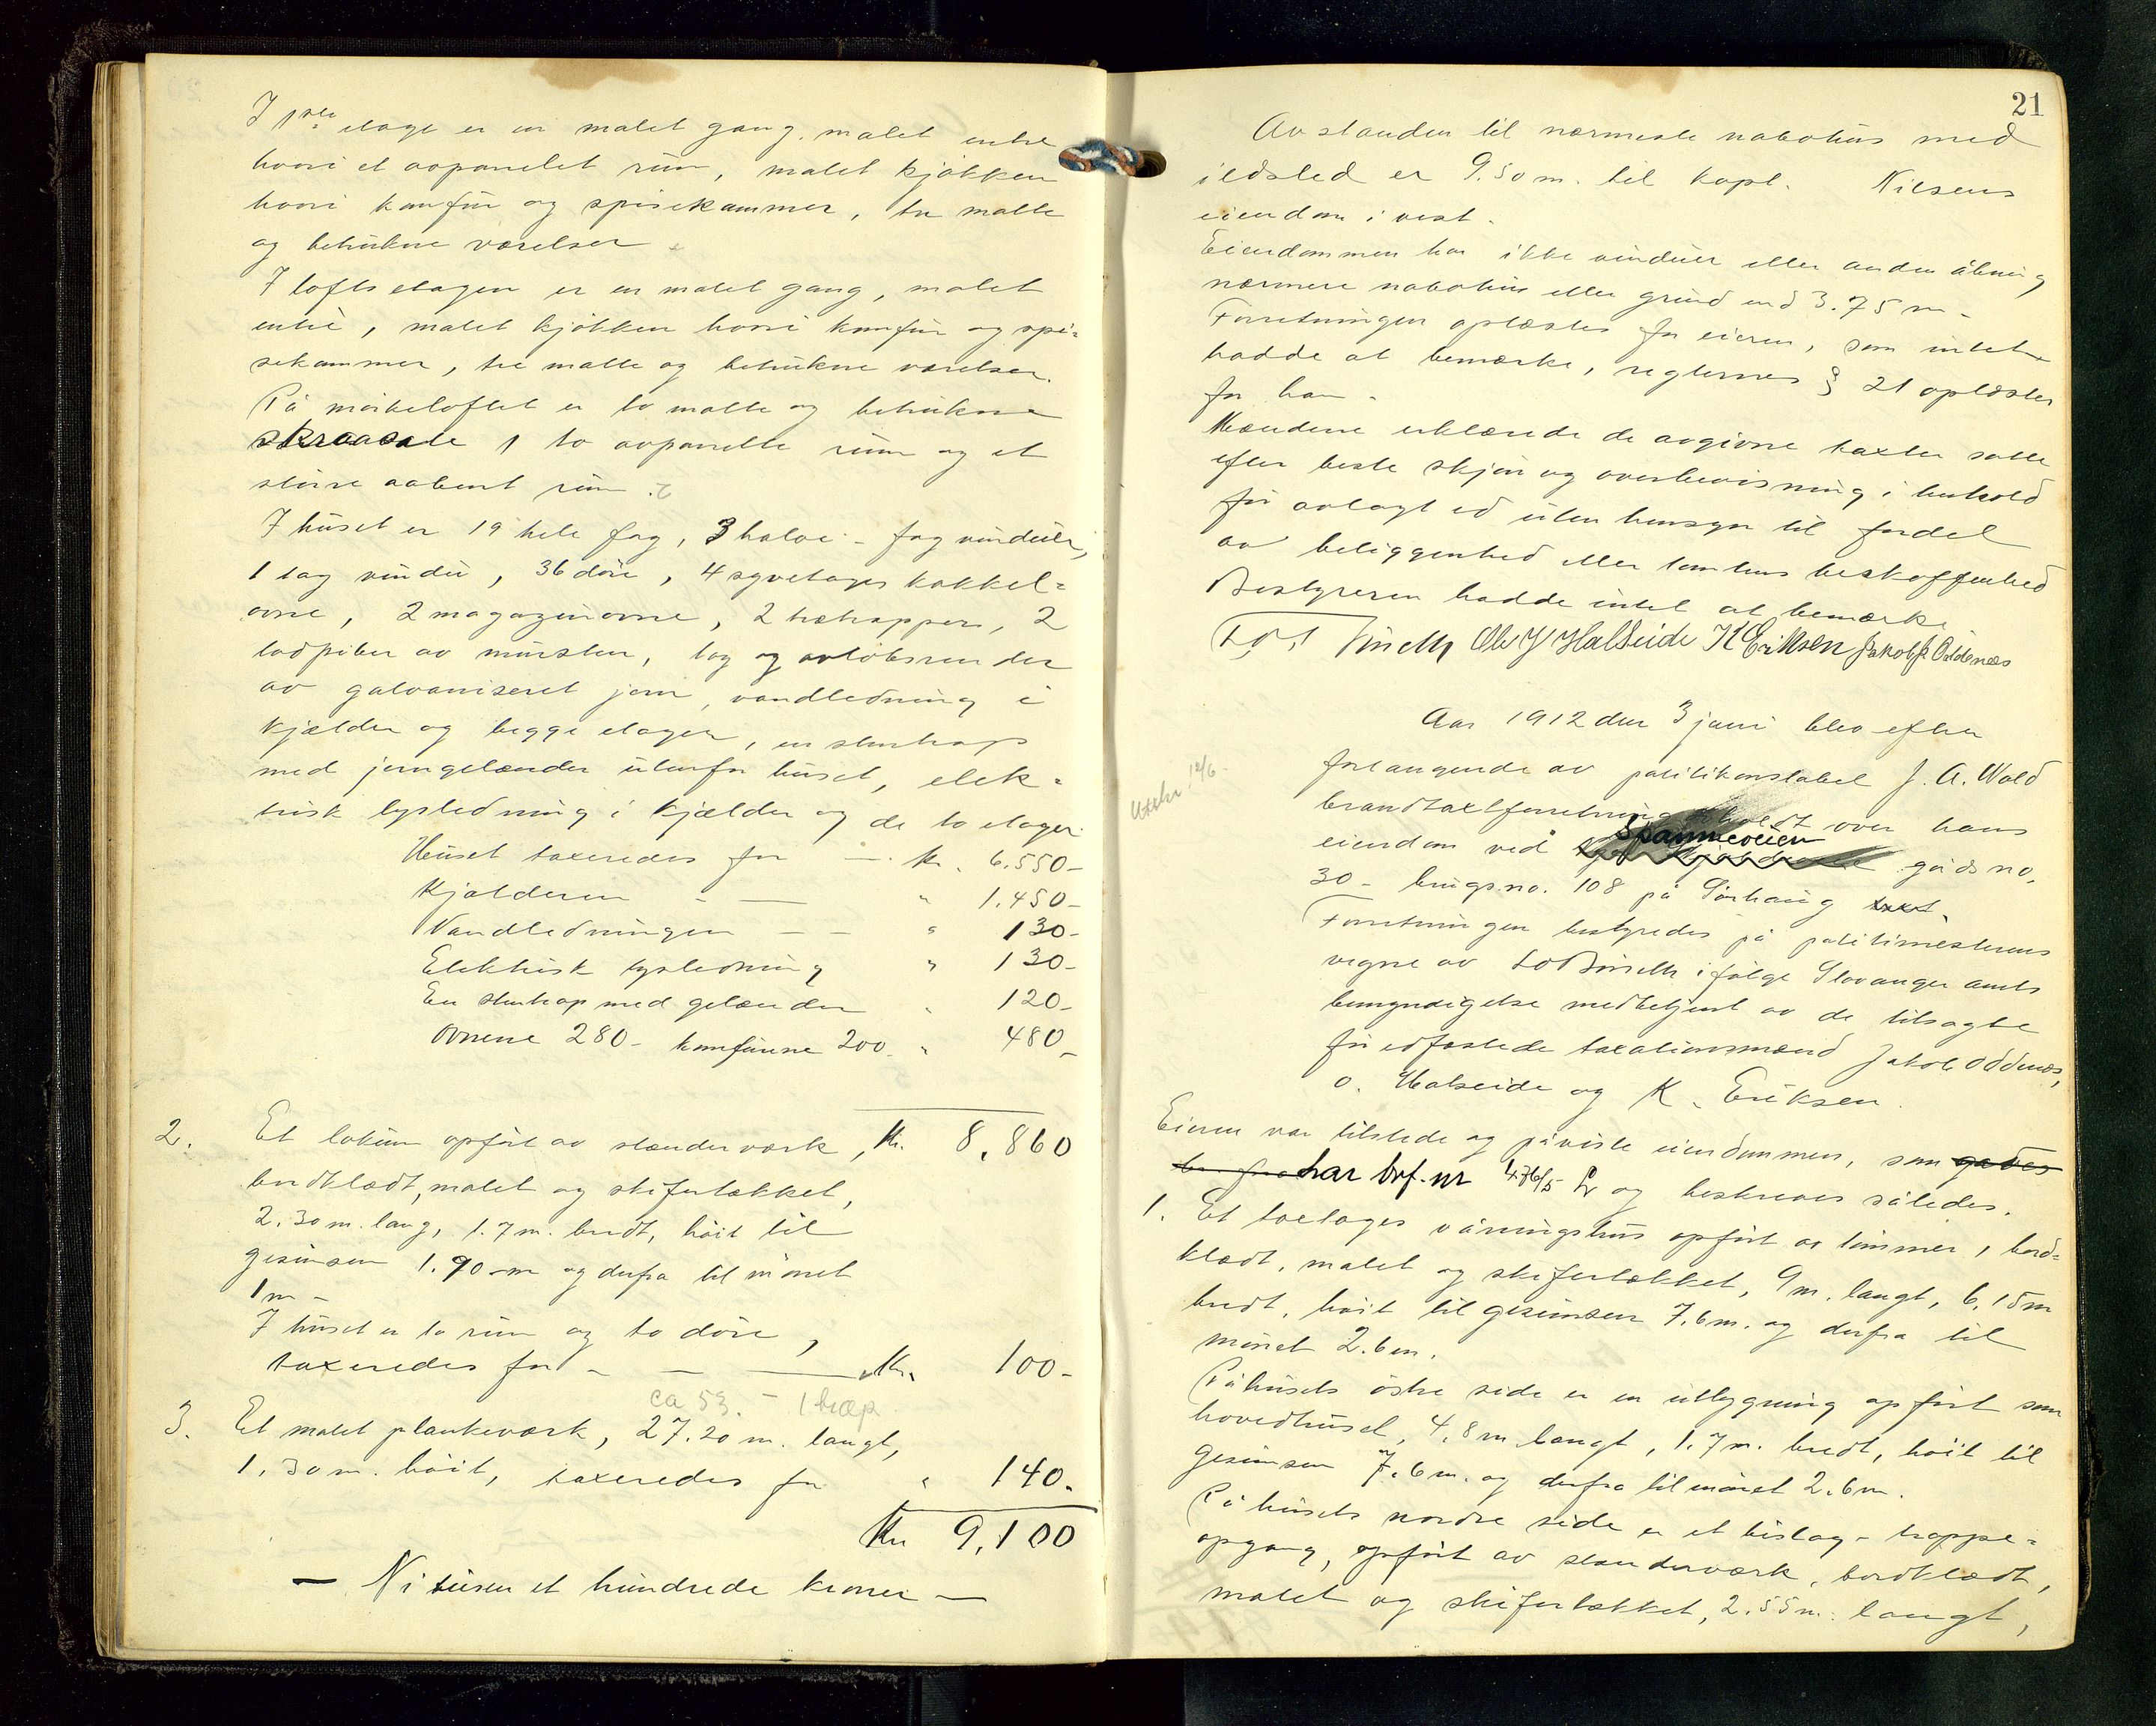 I 1ste etage er en malet gang, malet entre
hvori et avpanelet rum, malet kjøkken
hvori komfür og spisekammer, tre malte
og betrükne værelser
I loftsetagen er en malet gang, malet
entré, malet kjøkken hvori komfür og spi-
sekammer, tre malte og betrükne værelser.
På mørkeloftet er to malte og betrükne
skraasale, to avpanelte rüm og et
større aabent rüm.
I hüset er 19 hele fag, 3 halve - fag vindüer,
1 tag vindü, 36 döre, 4 syvetages kakkel-
ovne, 2 magazinovne, 2 trætrapper, 2
lodpiber av mürsten, tag og avløbsrender
av galvaniseret jern, vandledning i
kjælder og begge etager, en stentrap
med jerngelænder utenfor hüset, elek-
trisk lysledning i kjælder og de to etager
Hüset taxeredes for — Kr. 6.550-
Kjælderen - — " 1.450-
Vandledningen - - " 130-
Elektrisk lysledning " 130-
En stentrap med gelænder " 120-
Ovnene 280- komfürene 200 " 480-
Kr. 8.860
2. Et loküm opført av stænderværk,
bordklædt, malet og skifertækket,
2.30 m. lang, 1.7 m. bredt, høit til
gesimsen 1.90 m og derfra til mönet
1 m -
I hüset er to rüm og to döre,
taxeredes for - — — Kr. 100-
ca 53. - 1 trap
3. Et malet plankeværk, 27.20 m. langt,
1.30 m. höit, taxeredes for " 140.
Kr 9,100
— Ni tüsen et hündrede kroner —
21
Avstanden til nærmeste nabohüs med
ildsted er 9.50 m. til kapt. Nilsens
eiendom i vest.
Eiendommen har ikke vindüer eller anden åbning
nærmere nabohüs eller gründ end 3.75 m -
Forretningen oplæstes for eieren, som intet
hadde at bemærke, reglernes § 21 oplæstes
for ham.
Mændene erklærede de avgivne taxter satte
efter beste skjøn og overbevisning i henhold
før avlagt ed üten hensyn til fordel
av beliggenhed eller tomtens beskaffenhed
Bestyreren hadde intet at bemærke
Ole J Halseide K Eriksen Jakob Oddenæs
Aar 1912 den 3 juni blev efter
forlangende av politikonstabel J. A. Wold
brandtaxtforretning holdt over hans
eiendom ved Spanneveien gårds no.
30 - brügs no. 108 på Sørhaüg
Forretningen bestyredes på politimesterens
vegne av ifølge Stavanger amts
bemyndigelse medbetjent av de tilsagte
før edfæstede taxationsmænd Jakob Oddenæs,
O. Halseide og K. Eriksen.
Uttskr. 12/6.
Eieren var tilstede og påviste eiendommen, som
har brf. nr 476/5 og beskreves således.
1. Et toetages våningshüs opført av tömmer, bord-
klædt, malet og skifertækket, 9 m. langt, 6,15 m
bredt, höit til gesimsen 7.6 m. og derfra til
mönet 2.6 m.
På hüsets östre side er en utbygning opført som
hovedhüset, 4,8 m langt, 1.7 m. bredt, höit til
gesimsen 7.6 m. og derfra til mönet 2.6 m.
På hüsets nordre side er et bislag - trappe-
opgang, opført av stænderværk, bordklædt,
malet og skifertækket, 2.55 m. langt,